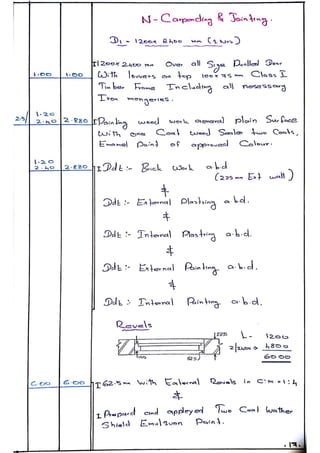 N - Carpending & Jointing.
D1 - 1200 x 2400 mm (1 Nos)
1200 x 2400 mm Over all Size Pnalled Door
1.00 1.00 With louvers on top 100 x 75 mm Class I
Timber Frame Including all nesassary
Iron mongeries.
1.20
2/ 2.40 2.880 Painting wood work general plain Surface
With one Coat wood Sealer two Coats,
Enamel Paint of approved Colour.
1.20
2.40 2.880 Ddt :- Brick Work a.b.d
(225 mm Ext wall)
&
Ddt :- External Plastring a.b.d.
&
Ddt :- Internal Plastring a.b.d.
&
Ddt :- External Painting a.b.d.
&
Ddt :- Internal Painting a.b.d.
Revels
225 L - 1200
2/2400 = 4800
100 62.5 6000
6.00 6.00 62.5 mm With External Revels in C:m = 1:4
&
Prepard and appleyed Two Coat Wather
Shield Emulsuon Paint.
.17.